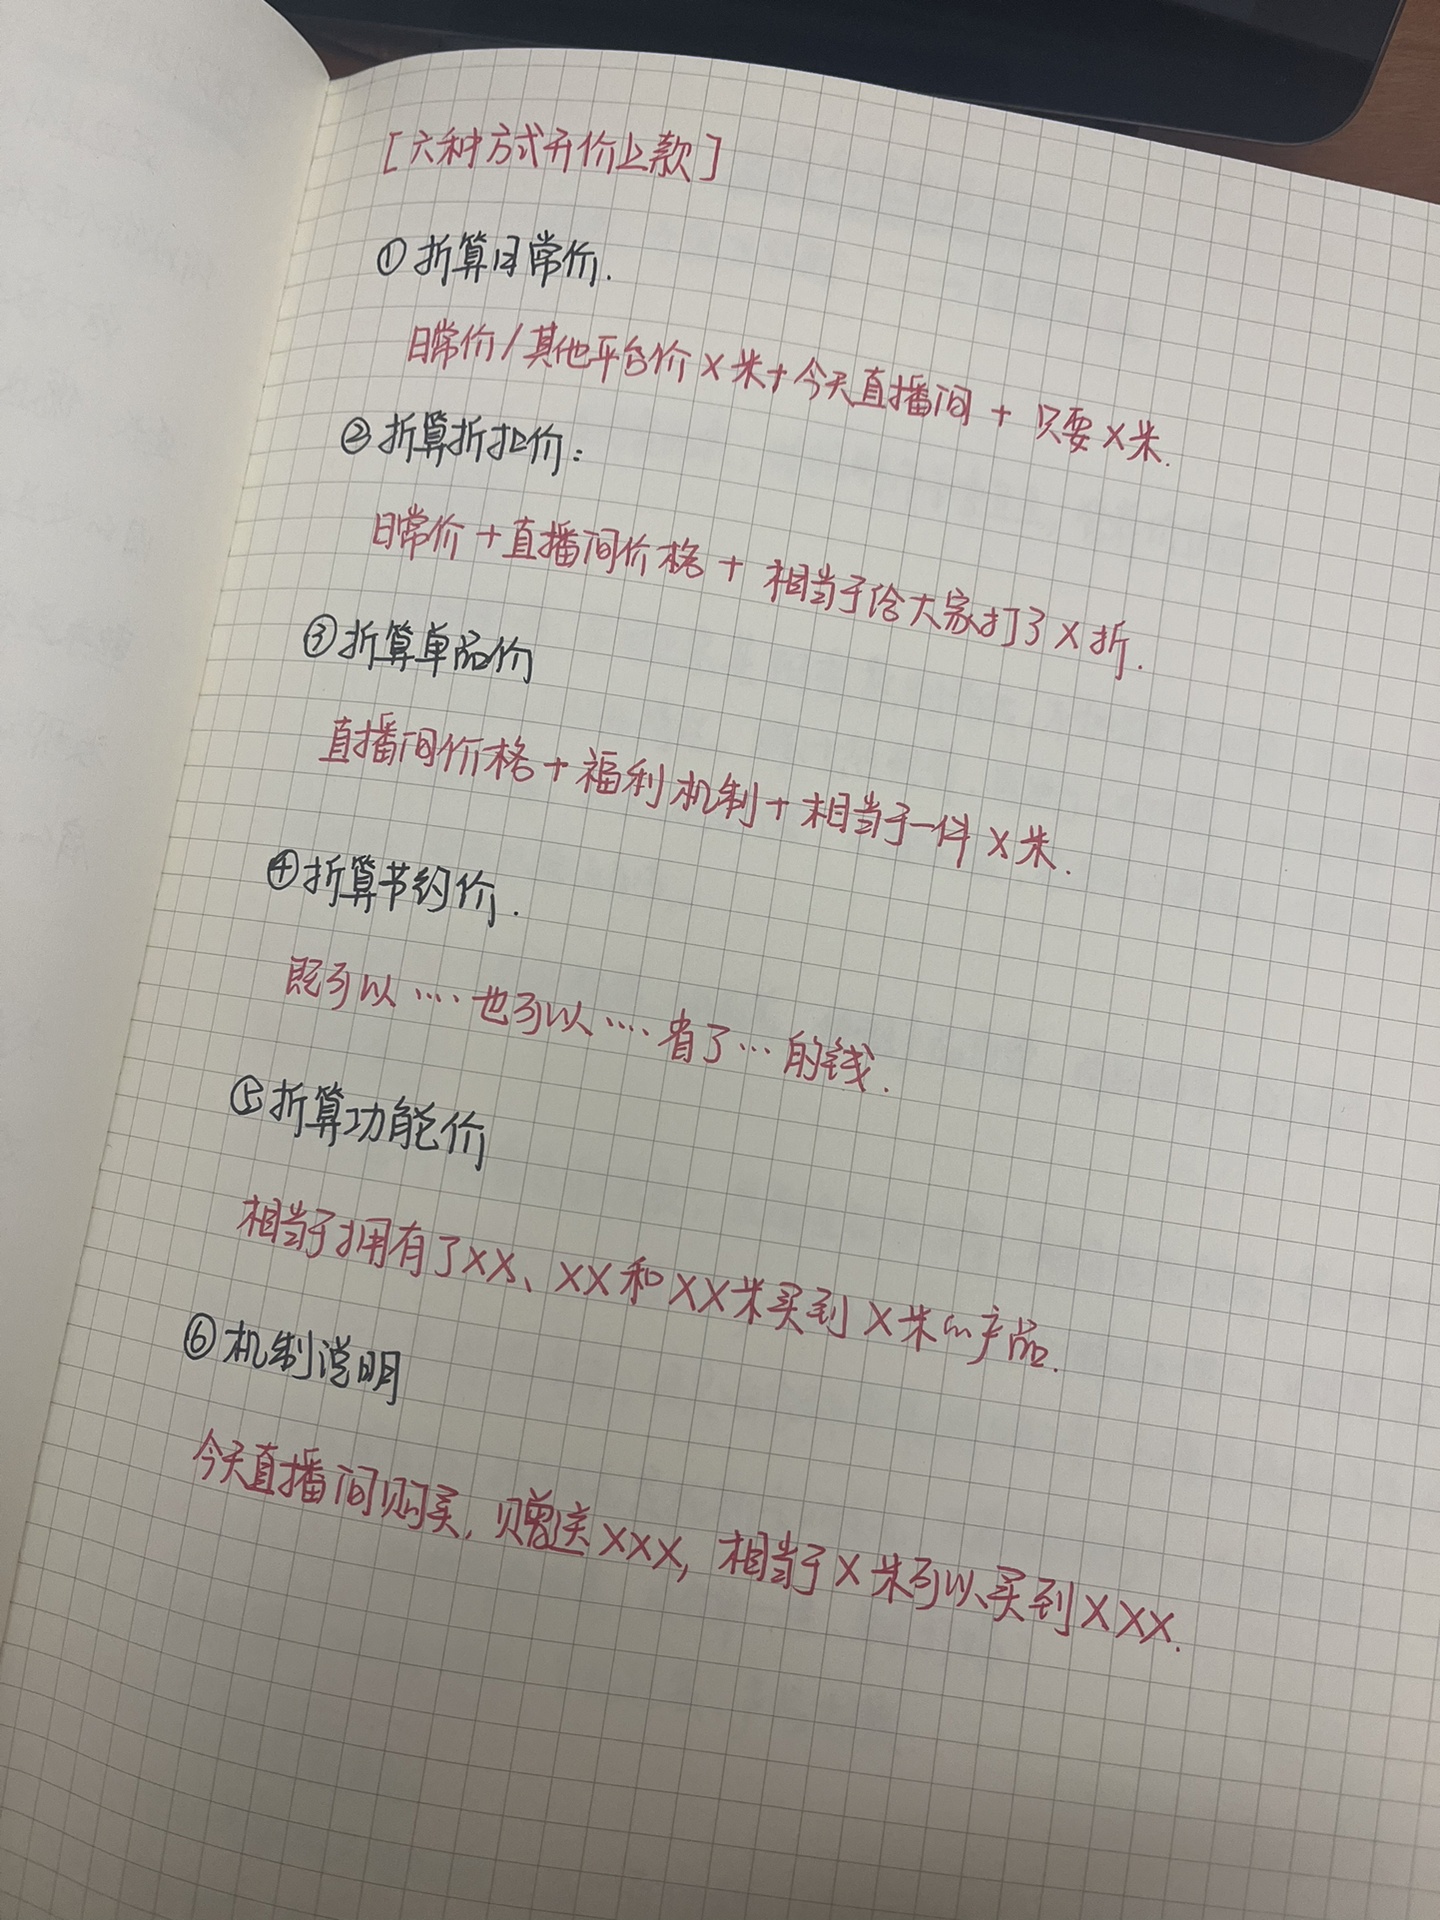 [六种方式开价上款]
①折算日常价.
日常价/其他平台价X米+今天直播间+只要X米.
②折算折扣价:
日常价+直播间价格+相当于给大家打了X折.
③折算单品价
直播间价格+福利机制+相当于一件X米.
④折算节约价.
既可以····也可以····省了···的钱.
⑤折算功能价
相当于拥有了XX、XX和XX米买到X米的产品.
⑥机制说明
今天直播间购买,赠送XXX,相当于X米可以买到XXX.